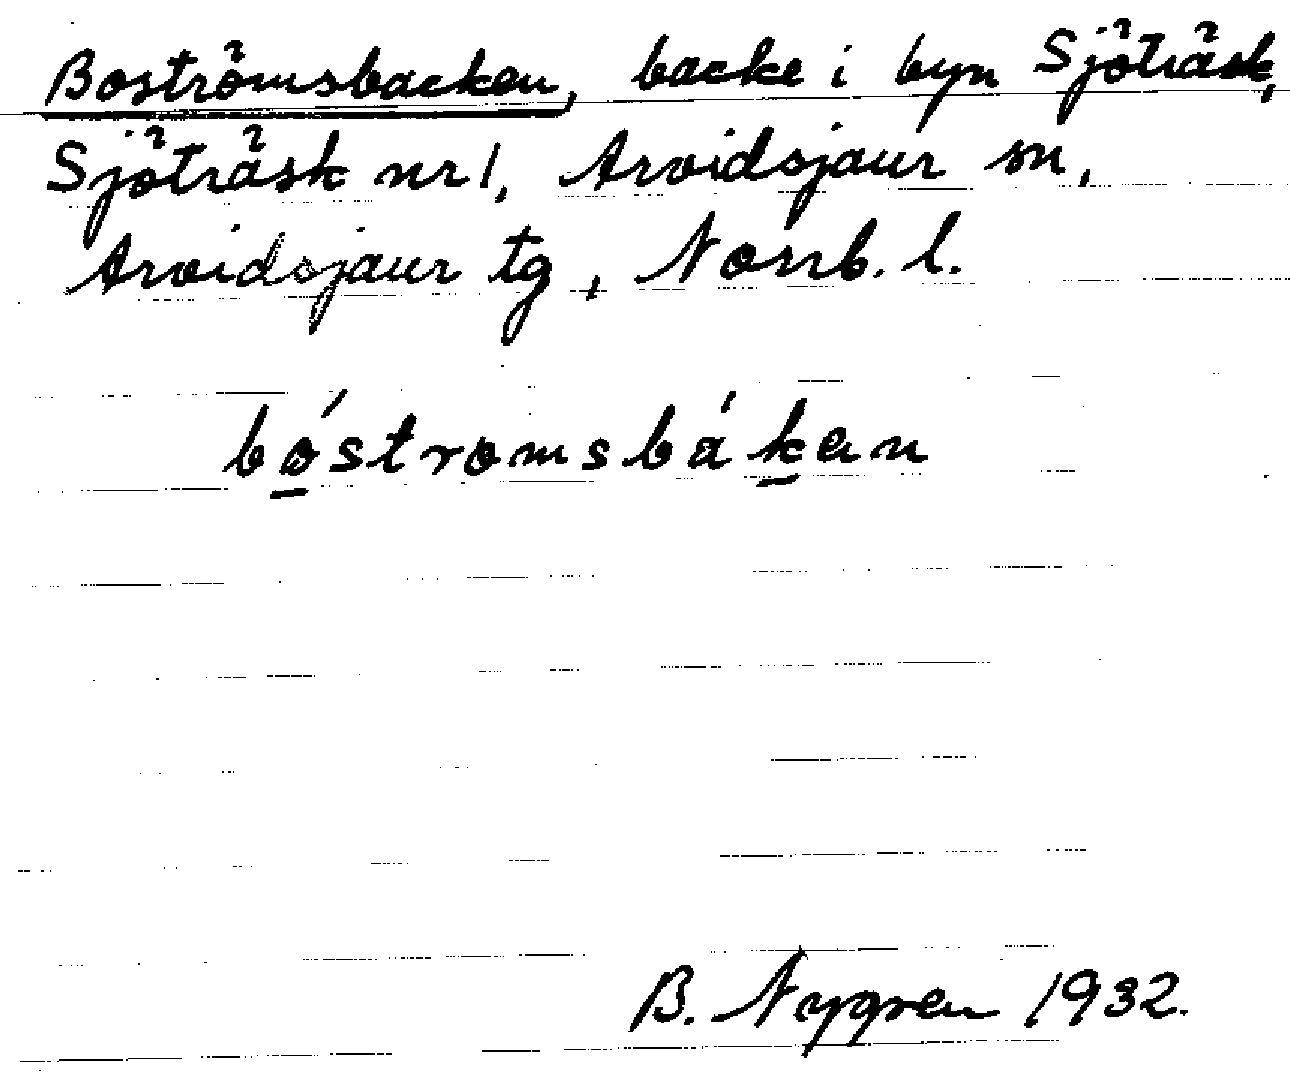 Boströmsbacken, backe i byn Sjöträsk,
Sjöträsk nr 1, Arvidsjaur sn,
Arvidsjaur tg, Norrb. l.
bó̲stromsbák̲en
B. Nygren 1932.